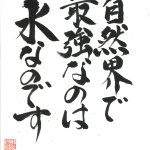 自然界で
最強なのは
水なのです